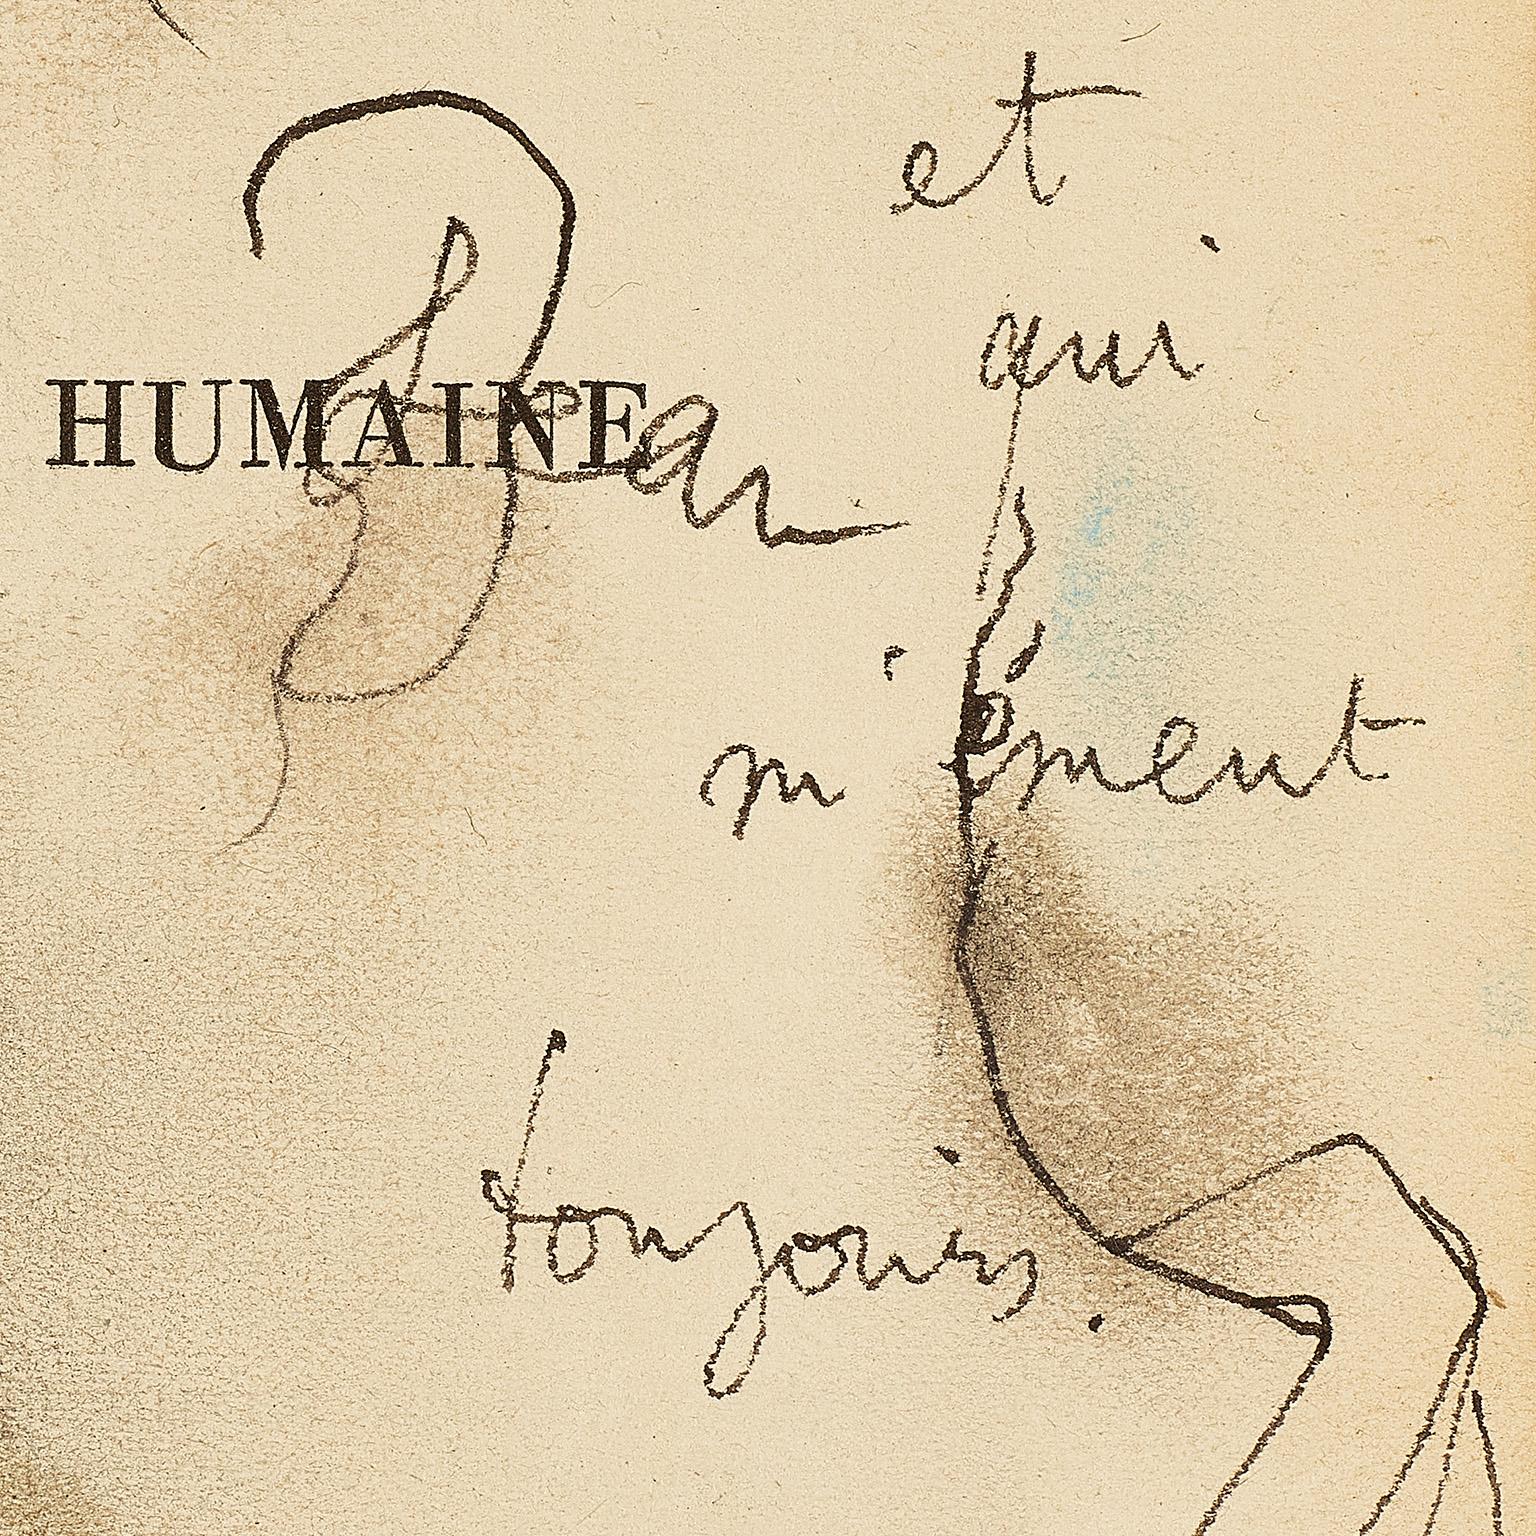 et
qui
HUMAINE
Jean
m'émeut
toujours.